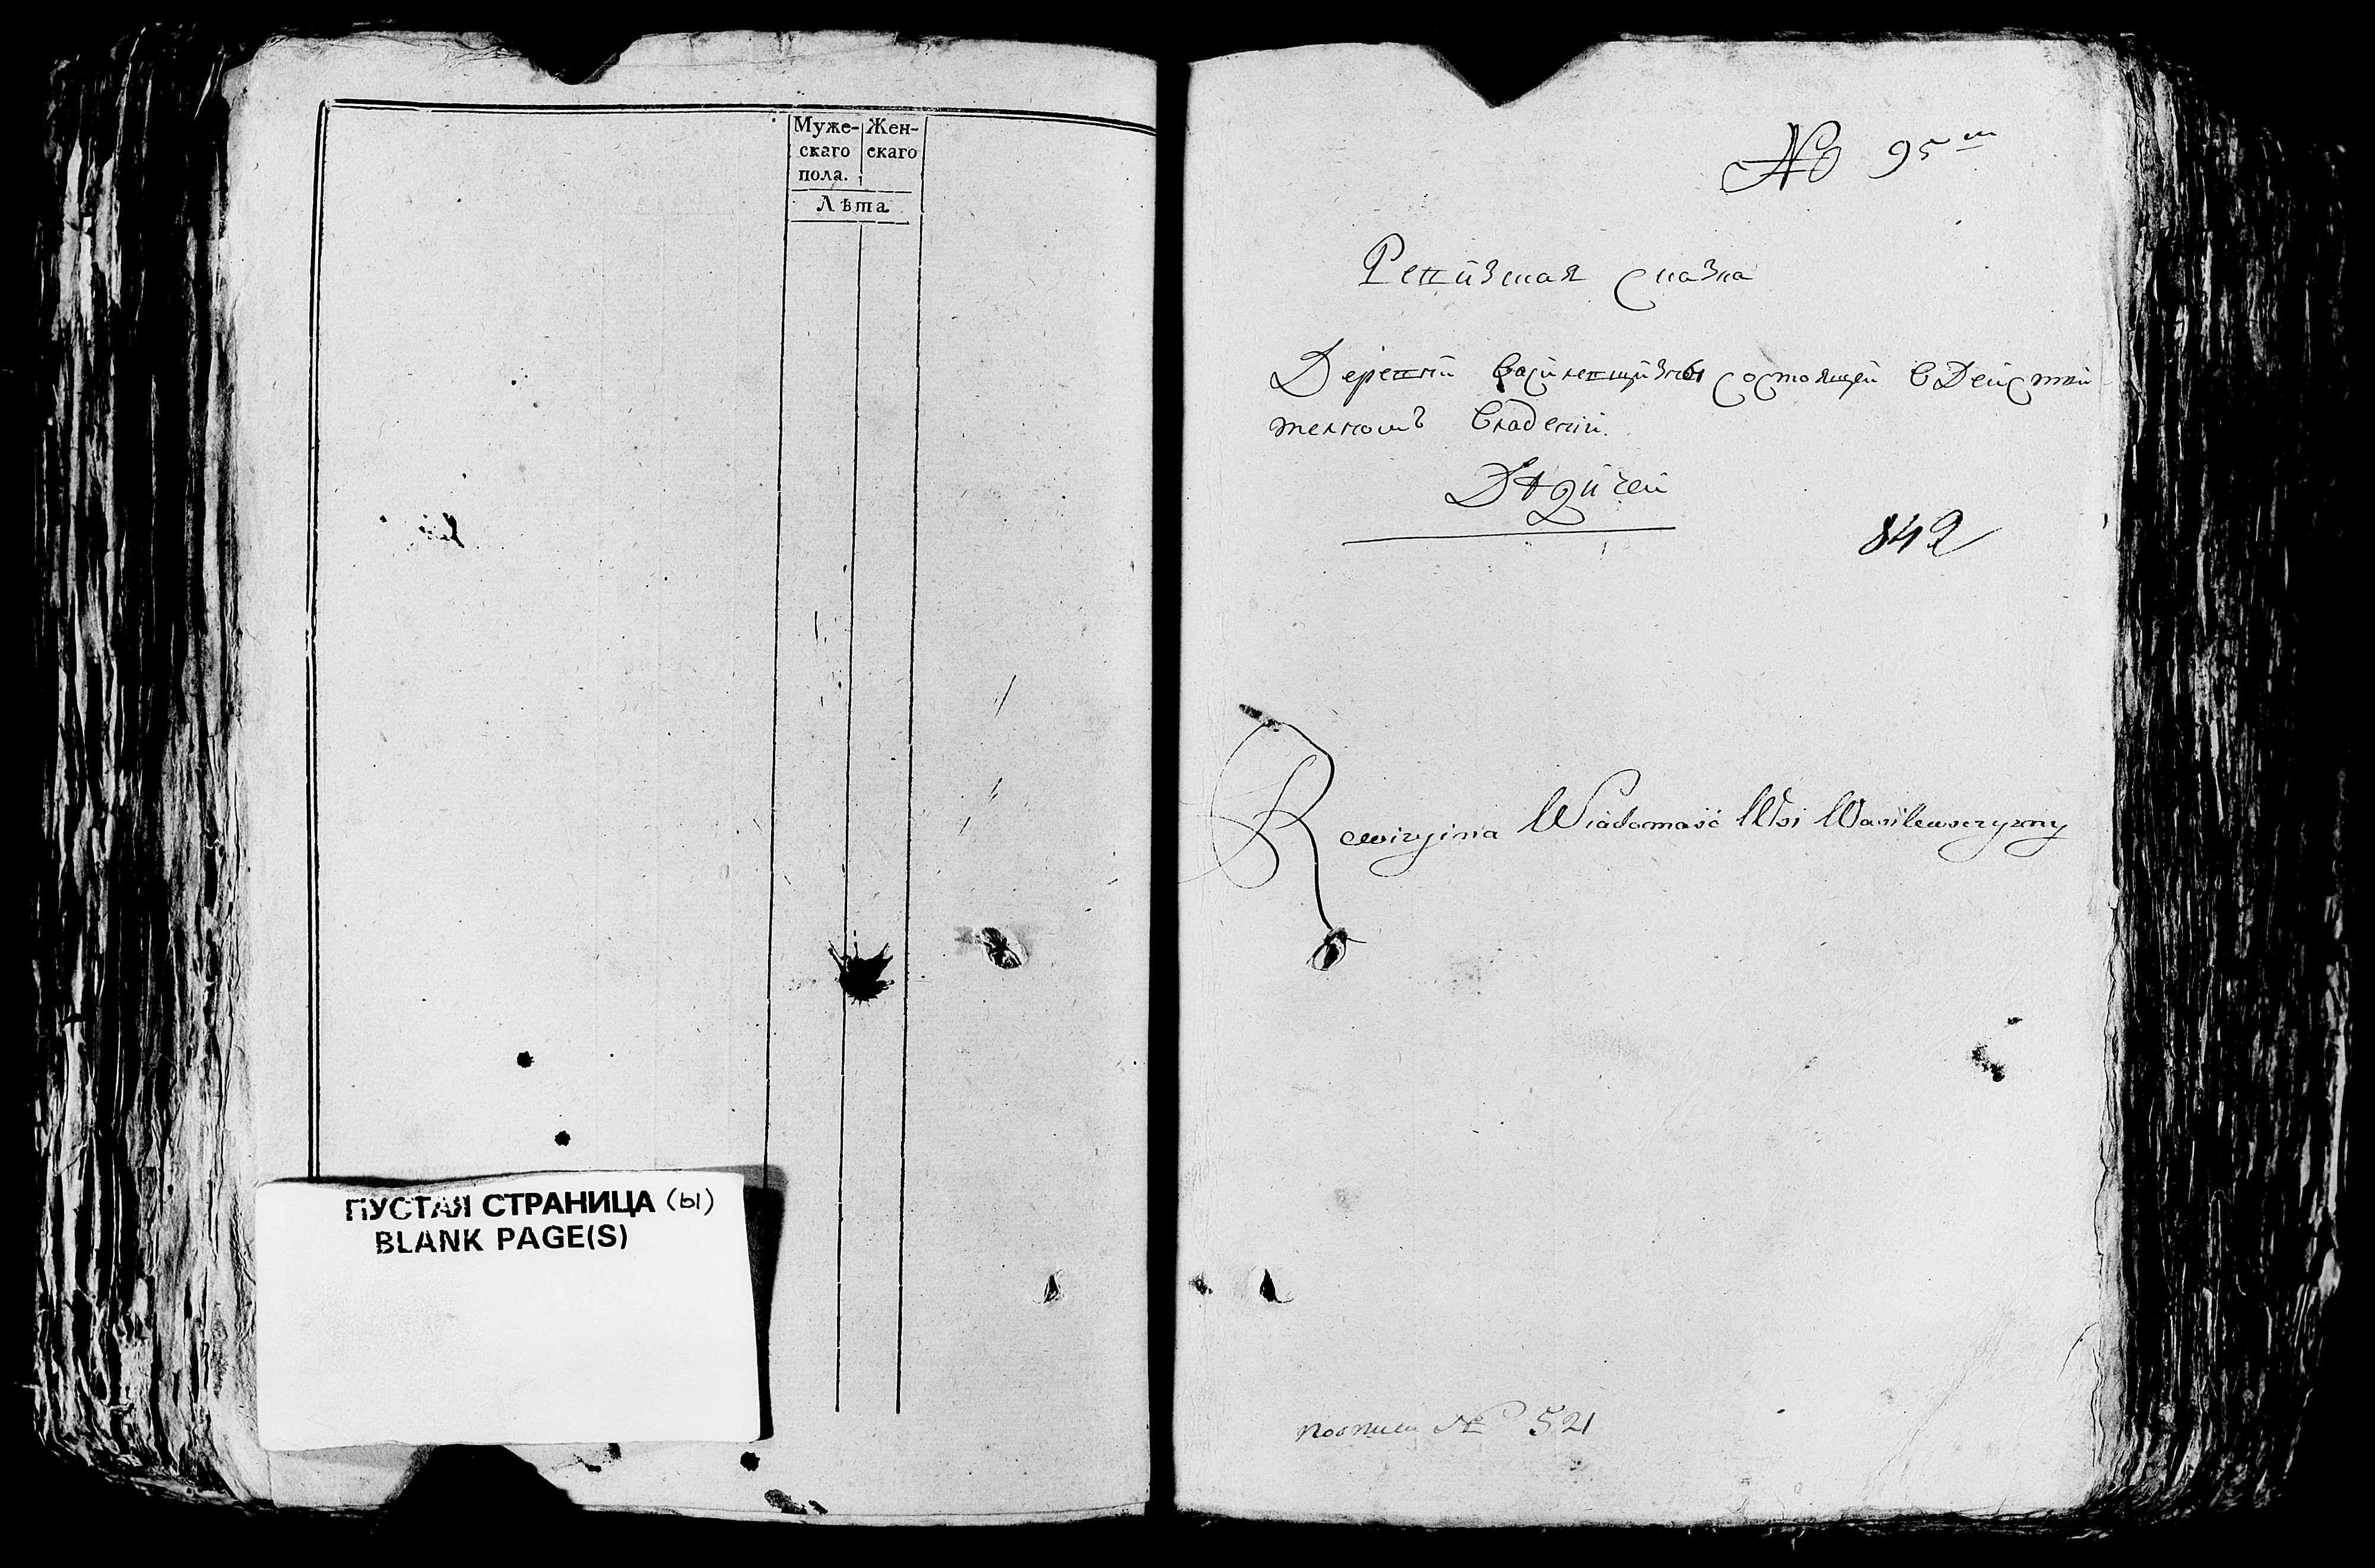 Муже-
скаго
пола.
Жен-
скаго
Лѣта
ПУСТАЯ СТРАНИЦА (ы)
BLANK PAGE(S)
№ 95
Ревизкая Сказка
Деревни Василевщизны состоящей в Действи-
телномъ Владении
842
Rewizyina Wiadomość Wsi Wasilewszczyzny
№ 521